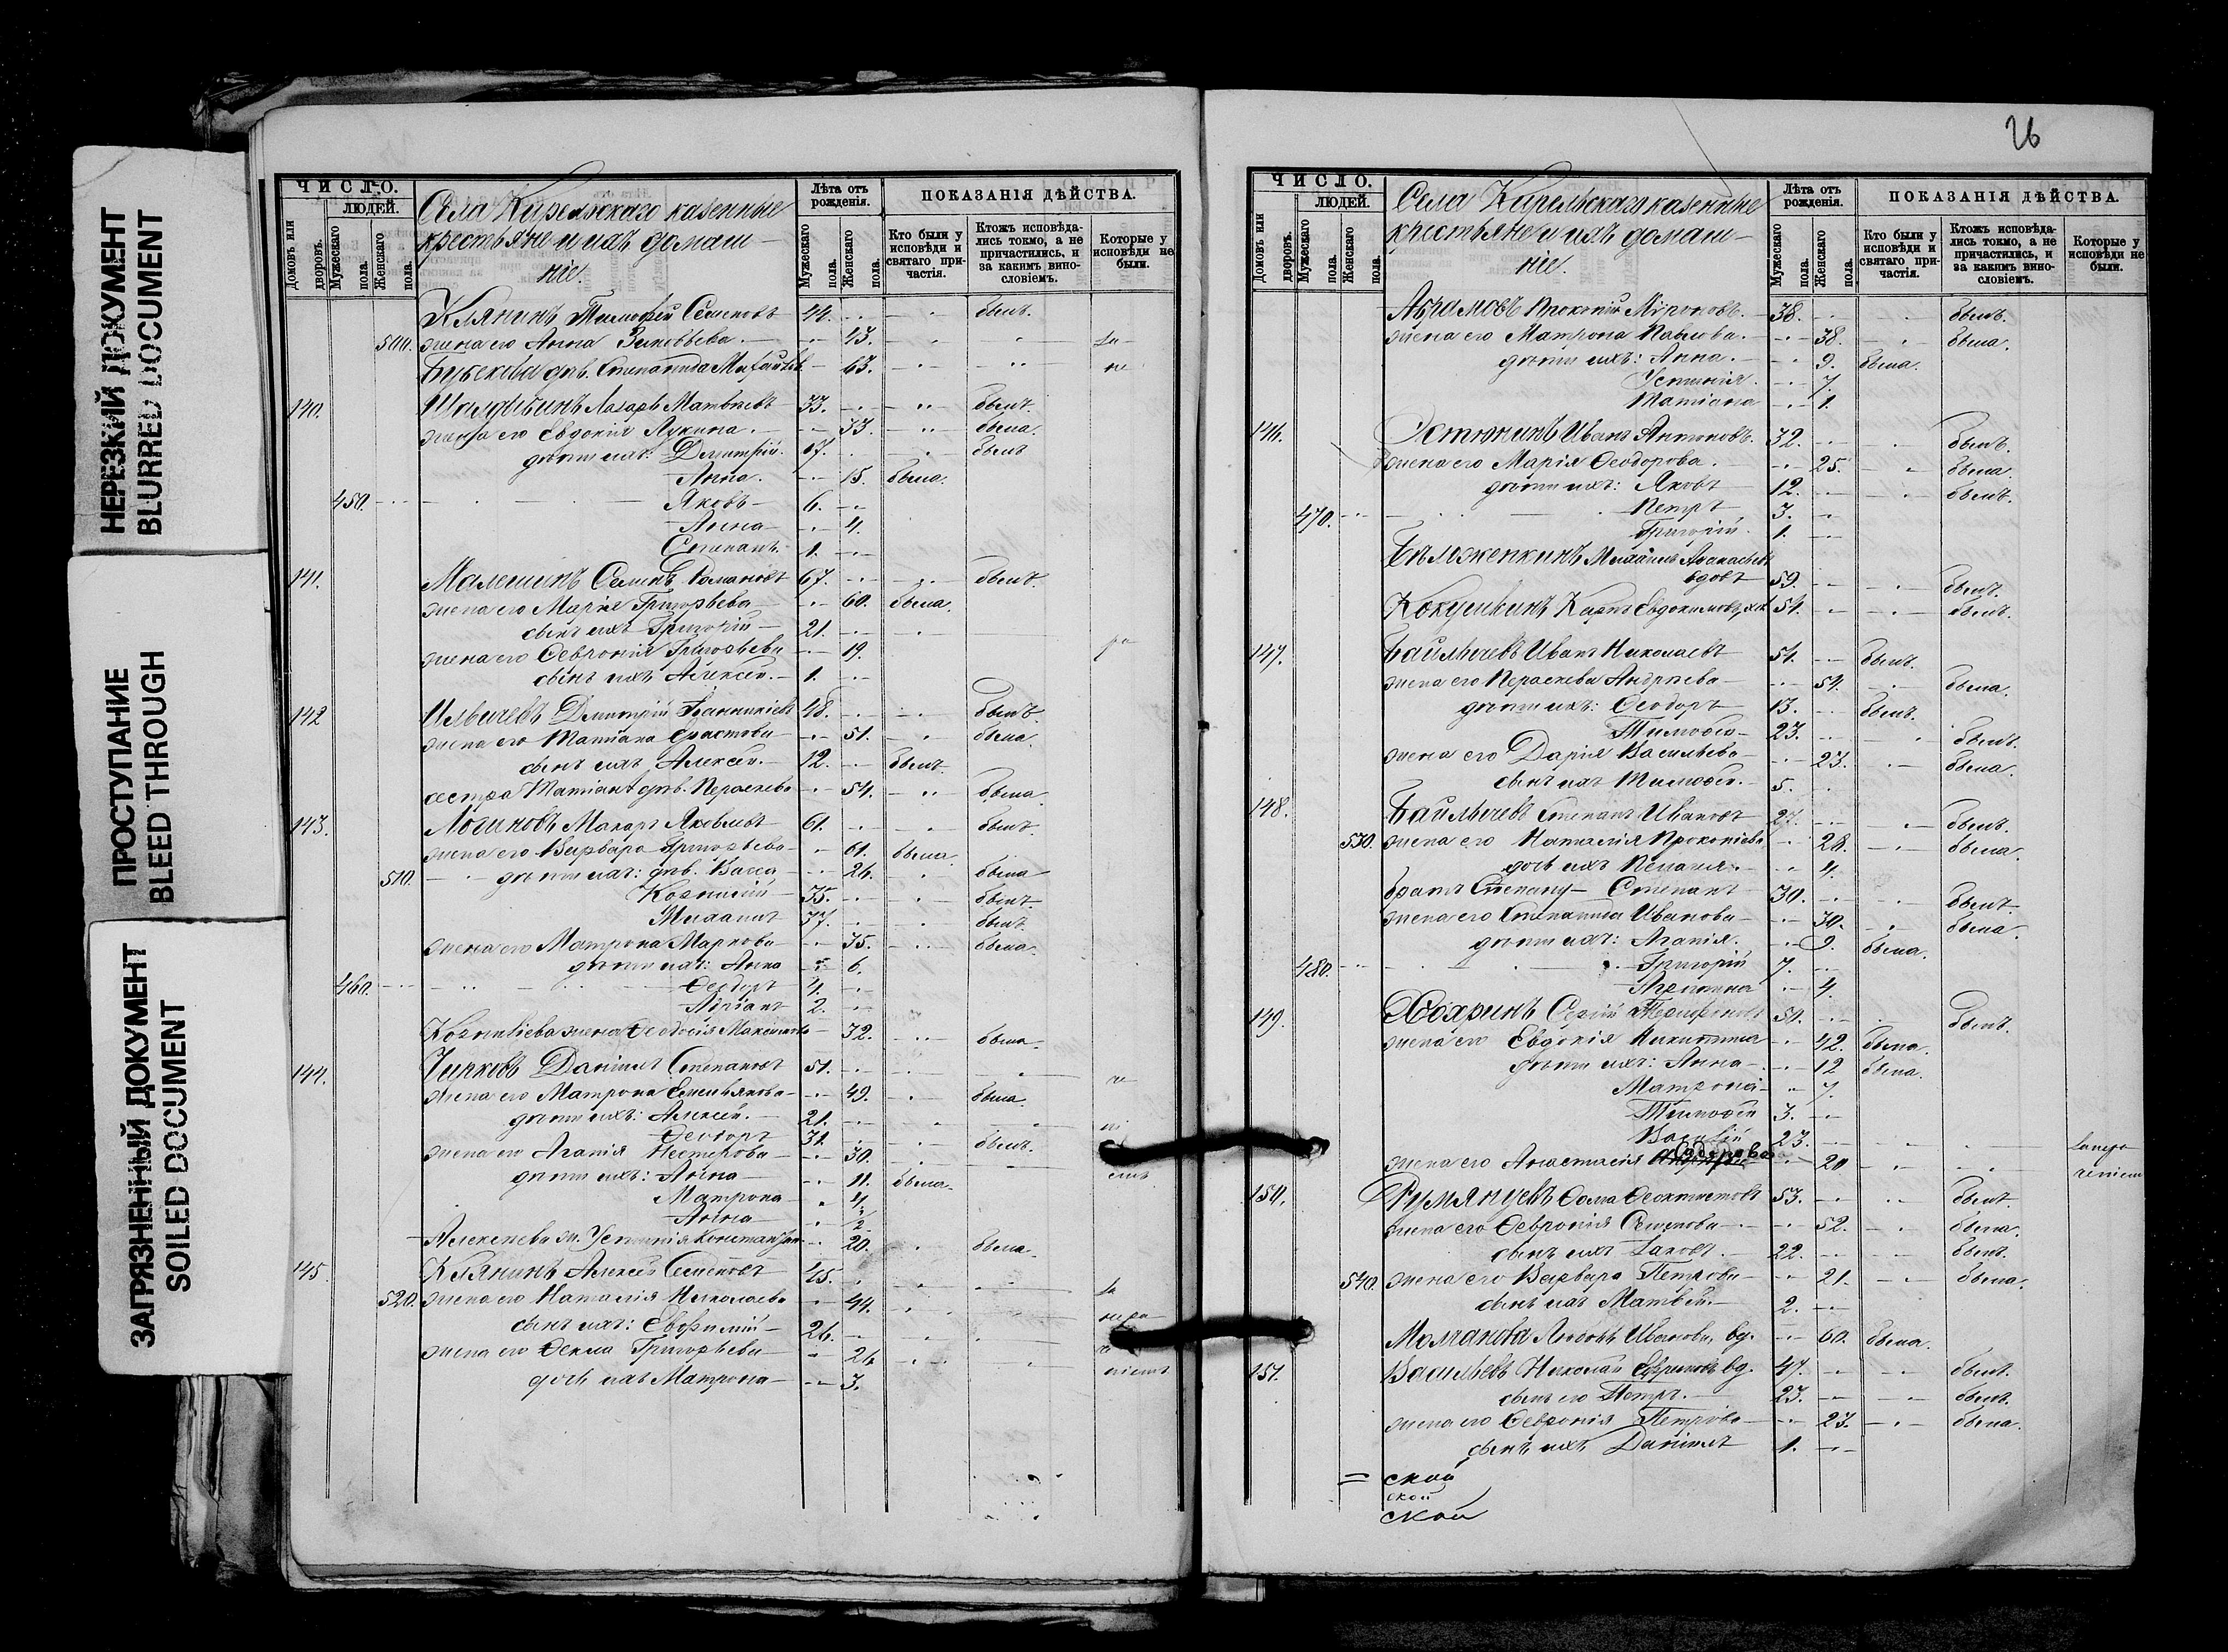 НЕРЕЗКИЙ ДОКУМЕНТ
BLURRED DOCUMENT
ПРОСТУПАНИЕ
BLEED THROUGH
ЗАГРЯЗНЕННЫЙ ДОКУМЕНТ
SOILED DOCUMENT
ЧИСЛО.
ЛЮДЕЙ.
Домовъ или дворовъ.
Мужескаго пола.
Женскаго пола.
Села Кирельского казенные
крестьяне и ихъ домаш-
ніе.
Лѣта отъ рожденія.
Мужескаго пола.
Женскаго пола.
ПОКАЗАНІЯ ДѢЙСТВА.
Кто были у исповѣди и святаго причастія.
Ктожъ исповѣдались токмо, а не причастились, и за какимъ винословіемъ.
Которые у исповѣди не были.
Клянинъ Тимофей Семеновъ 44. былъ.
500. жена его Анна Зиновьева. 43. За
дѣв. Степанида 63. не
140. Лазарь Матвѣевъ 33. былъ.
жена его Евдокія Лукина. 33. была.
дѣти ихъ: Димитрій. 17. былъ
Анна. 15. была.
450. Яковъ 6.
Анна 4.
Степанъ. 1.
141. Малешинъ Романовъ 67. былъ.
жена его Марія Григорьева 60. была.
сынъ ихъ Григорій 21.
жена его Февронія Григорьева 19. ра
сынъ ихъ Алексѣй. 1.
142 Ильичевъ Димитрій Іоанникіевъ 48. былъ.
жена его Татіана Ерастова 51. была.
сынъ ихъ Алексѣй. 12. былъ.
сестра дѣв. Параскева 54. была.
143. Логиновъ Макаръ Яковлевъ 61. былъ.
жена его Варвара Григорьева 61. была.
510. дѣти ихъ: дѣв. Васса 26. была
Корнилій 35. былъ.
Михаилъ 37. былъ.
жена его Матрона Маркова 35. была.
дѣти ихъ: Анна 6.
460. Ѳеодоръ 4.
Адріанъ 2.
жена Ѳеодосія Максимова 32. была.
144. Чирковъ Даніилъ Степановъ 51. че
жена его Матрона Емельянова 49. была.
дѣти ихъ: Алексѣй. 21. ні
Ѳеодоръ 31. былъ.
жена его Агапія Нестерова 30. емъ
дѣти ихъ: Анна 11. была.
Матрона 4.
Анна ½
Алексѣева ж. Устинія 20. была.
145. Клянинъ Алексѣй Семеновъ 45. За
520. жена его Наталія Николаева 44. нера
сынъ ихъ: Евфимій 26.
жена его Ѳекла Григорьева 26. ніемъ.
дочь ихъ Матрона 3.
26
ЧИСЛО.
ЛЮДЕЙ.
Домовъ или дворовъ.
Мужескаго пола.
Женскаго пола.
Села Кирельского казенные
крестьяне и ихъ домаш-
ніе.
Лѣта отъ рожденія.
Мужескаго пола.
Женскаго пола.
ПОКАЗАНІЯ ДѢЙСТВА.
Кто были у исповѣди и святаго причастія.
Ктожъ исповѣдались токмо, а не причастились, и за какимъ винословіемъ.
Которые у исповѣди не были.
Абрамовъ Прокопій Мѵроновъ. 38. былъ.
жена его Матрона Павлова. 38. была.
дѣти ихъ: Анна. 9. была.
Устинія. 7.
Татіана 1.
146. Устюнинъ Иванъ Антоновъ. 32. былъ.
жена его Марія Ѳеодорова. 25. была.
дѣти ихъ: Яковъ 12. былъ.
470. Петръ 3.
Григорій. 1.
Михаилъ
вдовъ 59. былъ.
Кокушкинъ Карпъ Евдокимовъ, 51. былъ.
147. Байлычевъ Иванъ Николаевъ 54. былъ.
жена его Параскева Андрѣева 54. была.
дѣти ихъ: Ѳеодоръ 13. былъ.
Тимоѳей 23. былъ.
жена его Дарія Васильева 23. была.
сынъ ихъ Тимоѳей. 5.
148. Байлычевъ Степанъ Ивановъ 27. былъ.
530. жена его Наталія Прокопіева 28. была.
дочь ихъ Пелагія. 4.
братъ Степану Степанъ 30. былъ.
жена его Степанида Иванова 30. была.
дѣти ихъ: Агапія. 9. была.
480. Григорій 7.
4.
149. Хохринъ Сергій 50. былъ.
жена его Евдокія Никитина 42. была.
дѣти ихъ: Анна 12 была.
Матрона 7.
Тимоѳей 3.
Василій 23. За нера
жена его Анастасія Ѳедорова 20 ченіем
150. Румянцевъ Ѳома Ѳеоктистовъ 53. былъ.
жена его Февронія Семенова 52. была.
сынъ ихъ Іаковъ. 22. былъ.
540. жена его Варвара Петрова 21. была.
сынъ ихъ Матвѣй. 2.
Молчанова Любовь Иванова, вд. 60. была.
151. Васильевъ Николай Ефимовъ вд. 47. былъ.
сынъ его Петръ. 23. былъ.
жена его Февронія Петрова 23. была.
сынъ ихъ Даніилъ 1.
= ской
ской
ской